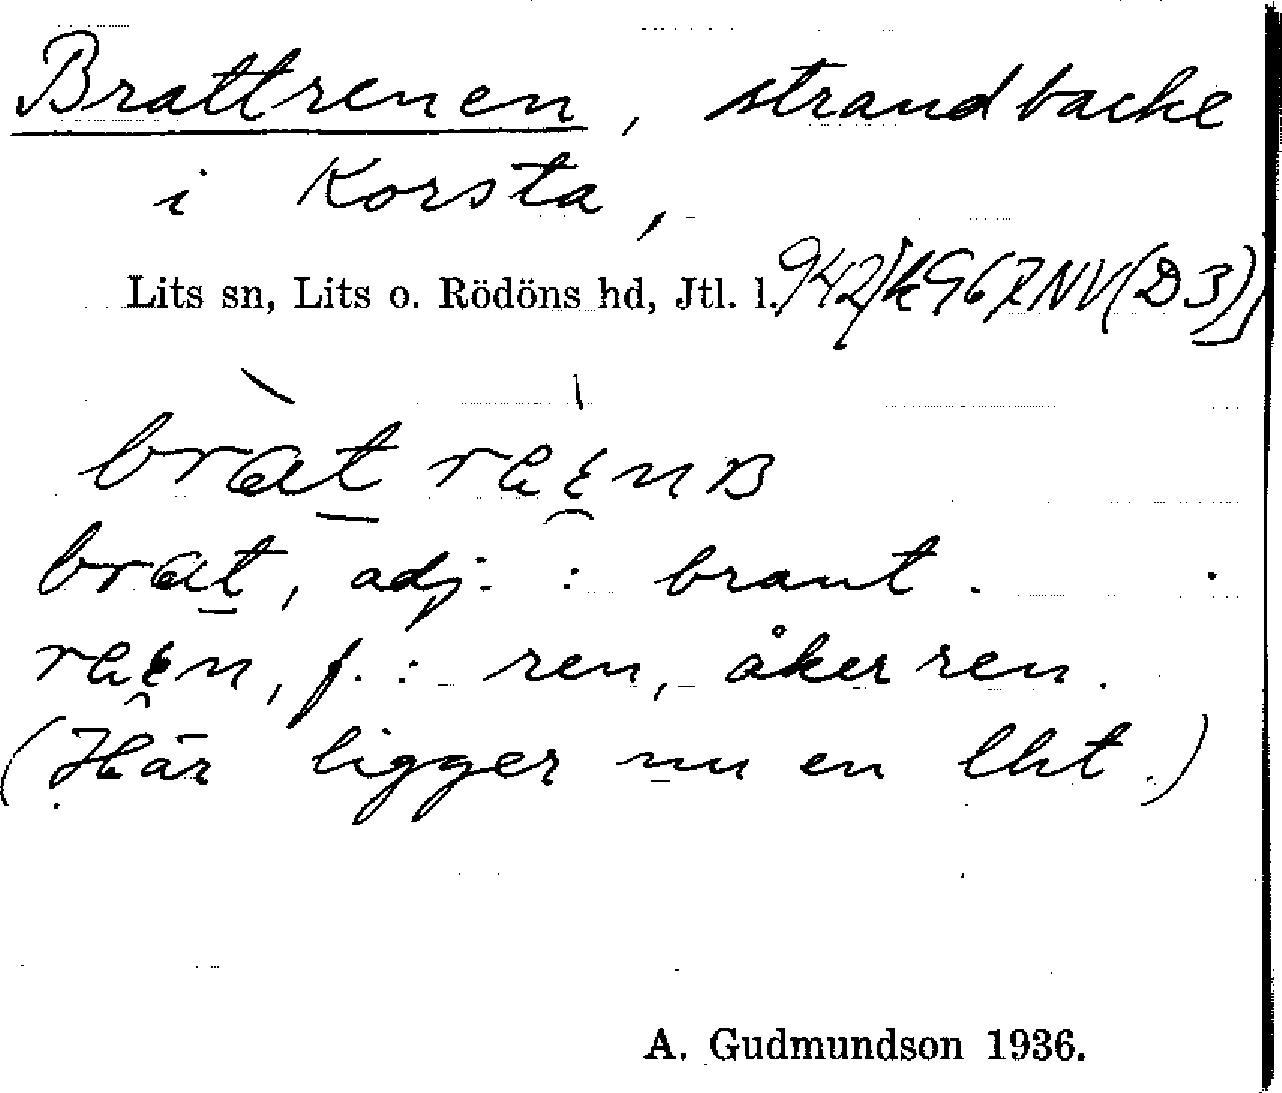 Brattrenen, strandbacke
i Korsta,
Lits sn, Lits o. Rödöns hd, Jtl. l.
brat
brat, adj. : brant.
f. : ren, åkerren.
(Här ligger nu en lht.)
A. Gudmundson 1936.